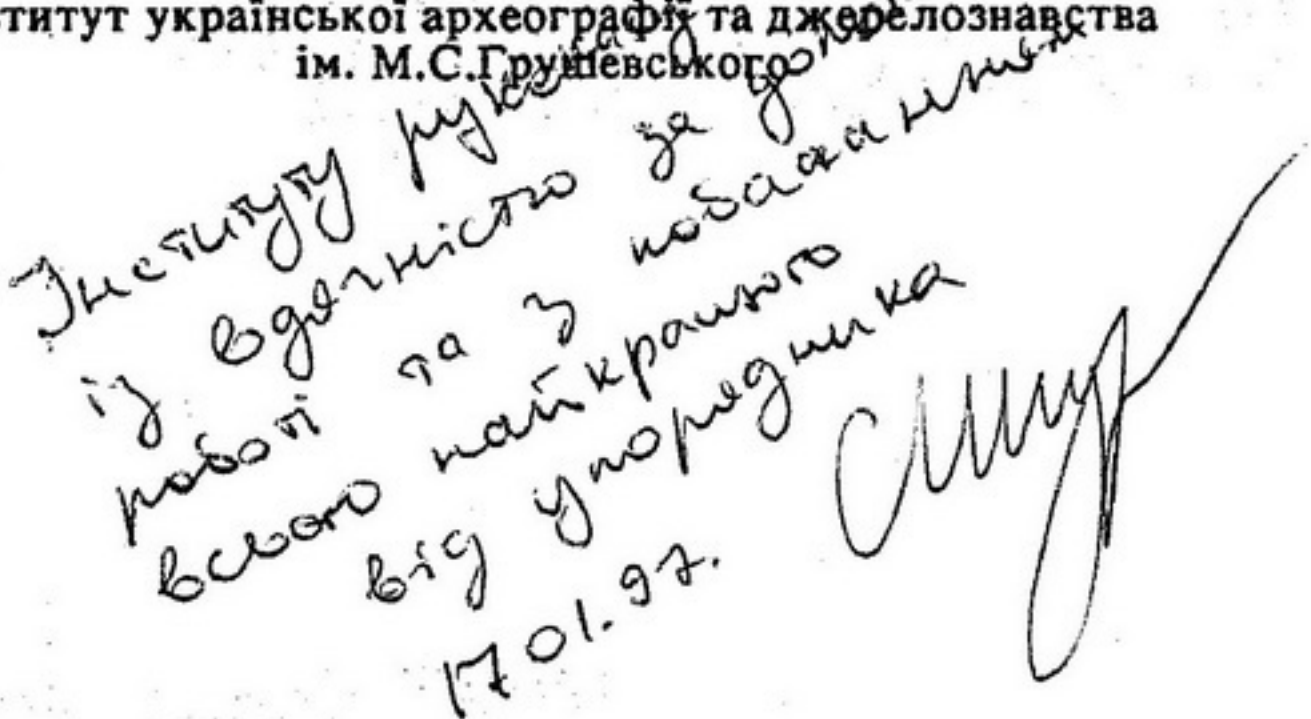 титут української археографії та джерелознавства
ім. М.С.Грушевського
Інституту
із вдячністю за
роботі та з побажанням
всього найкращого
від упорядника
17 01.97.